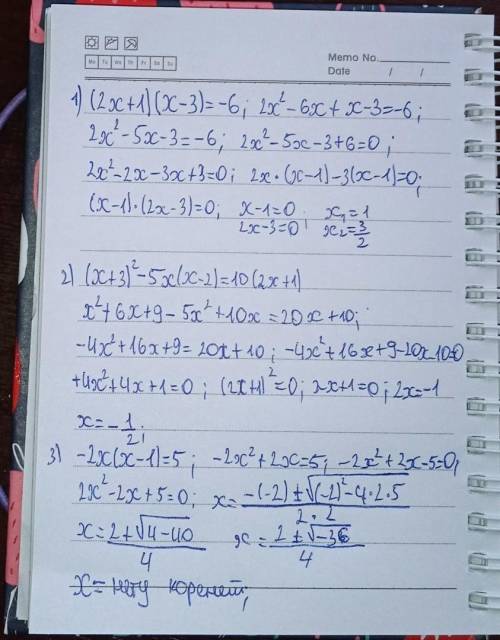 Memo No.
Mo Tu We Th Fr Sa Su
Date / /
1) (2x+1)(x-3)=-6; 2x²-6x+x-3=-6;
2x²-5x-3=-6; 2x²-5x-3+6=0;
2x²-2x-3x+3=0; 2x·(x-1)-3(x-1)=0;
(x-1)·(2x-3)=0; x-1=0; x₁=1
2x-3=0 x₂=3/2
2) (x+3)²-5x(x-2)=10(2x+1)
x²+6x+9-5x²+10x=20x+10;
-4x²+16x+9=20x+10; -4x²+16x+9-20x-10=0
+4x²+4x+1=0; (2x+1)²=0; 2x+1=0; 2x=-1
x=-1/2;
3) -2x(x-1)=5; -2x²+2x=5; -2x²+2x-5=0;
2x²-2x+5=0; x=(-(-2)±√((-2)²-4·2·5))/(2·2)
x=(2±√(4-40))/4 x=(2±√(-36))/4
x= нету корней;